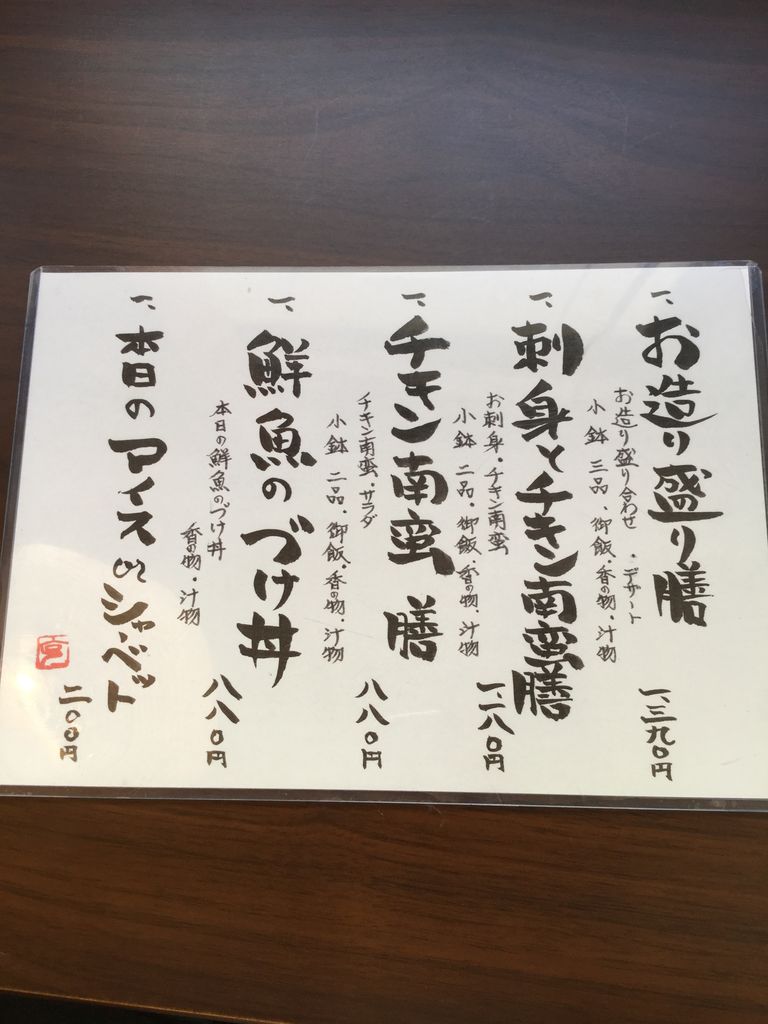 一、お造り盛り膳
お造り盛り合わせ・デザート
小鉢 三品・御飯・香の物・汁物
一、三九〇円
一、刺身とチキン南蛮膳
お刺身・チキン南蛮
小鉢 二品・御飯・香の物・汁物
一、一八〇円
一、チキン南蛮 膳
チキン南蛮・サラダ
小鉢 二品・御飯・香の物・汁物
八八〇円
一、鮮魚のづけ丼
本日の鮮魚のづけ丼
香の物・汁物
八八〇円
一、本日のアイスorシャーベット
二〇〇円